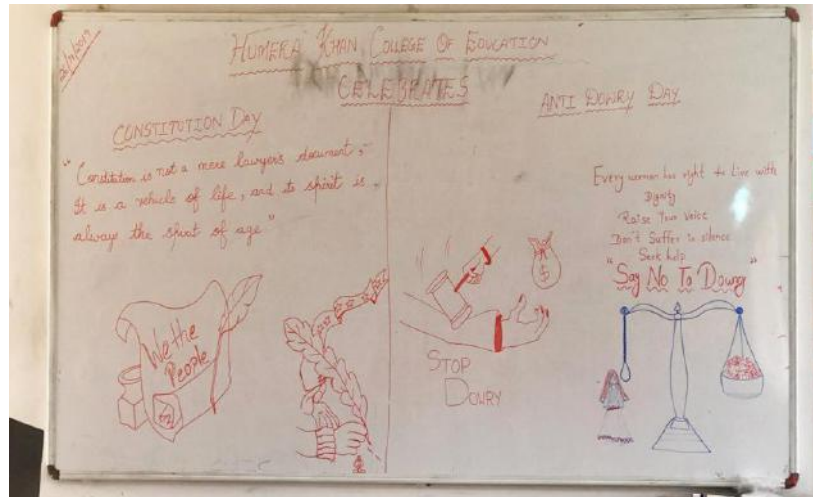 26/11/2019
HUMERA KHAN COLLEGE OF EDUCATION
CELEBRATES
CONSTITUTION DAY
"Constitution is not a mere lawyers document,
It is a vehicle of life, and its spirit is
always the spirit of age"
We the
People
ANTI DOWRY DAY
Every woman has right to Live with
Dignity
Raise Your Voice
Don't Suffer in silence
Seek help
"Say No To Dowry"
$
STOP
DOWRY